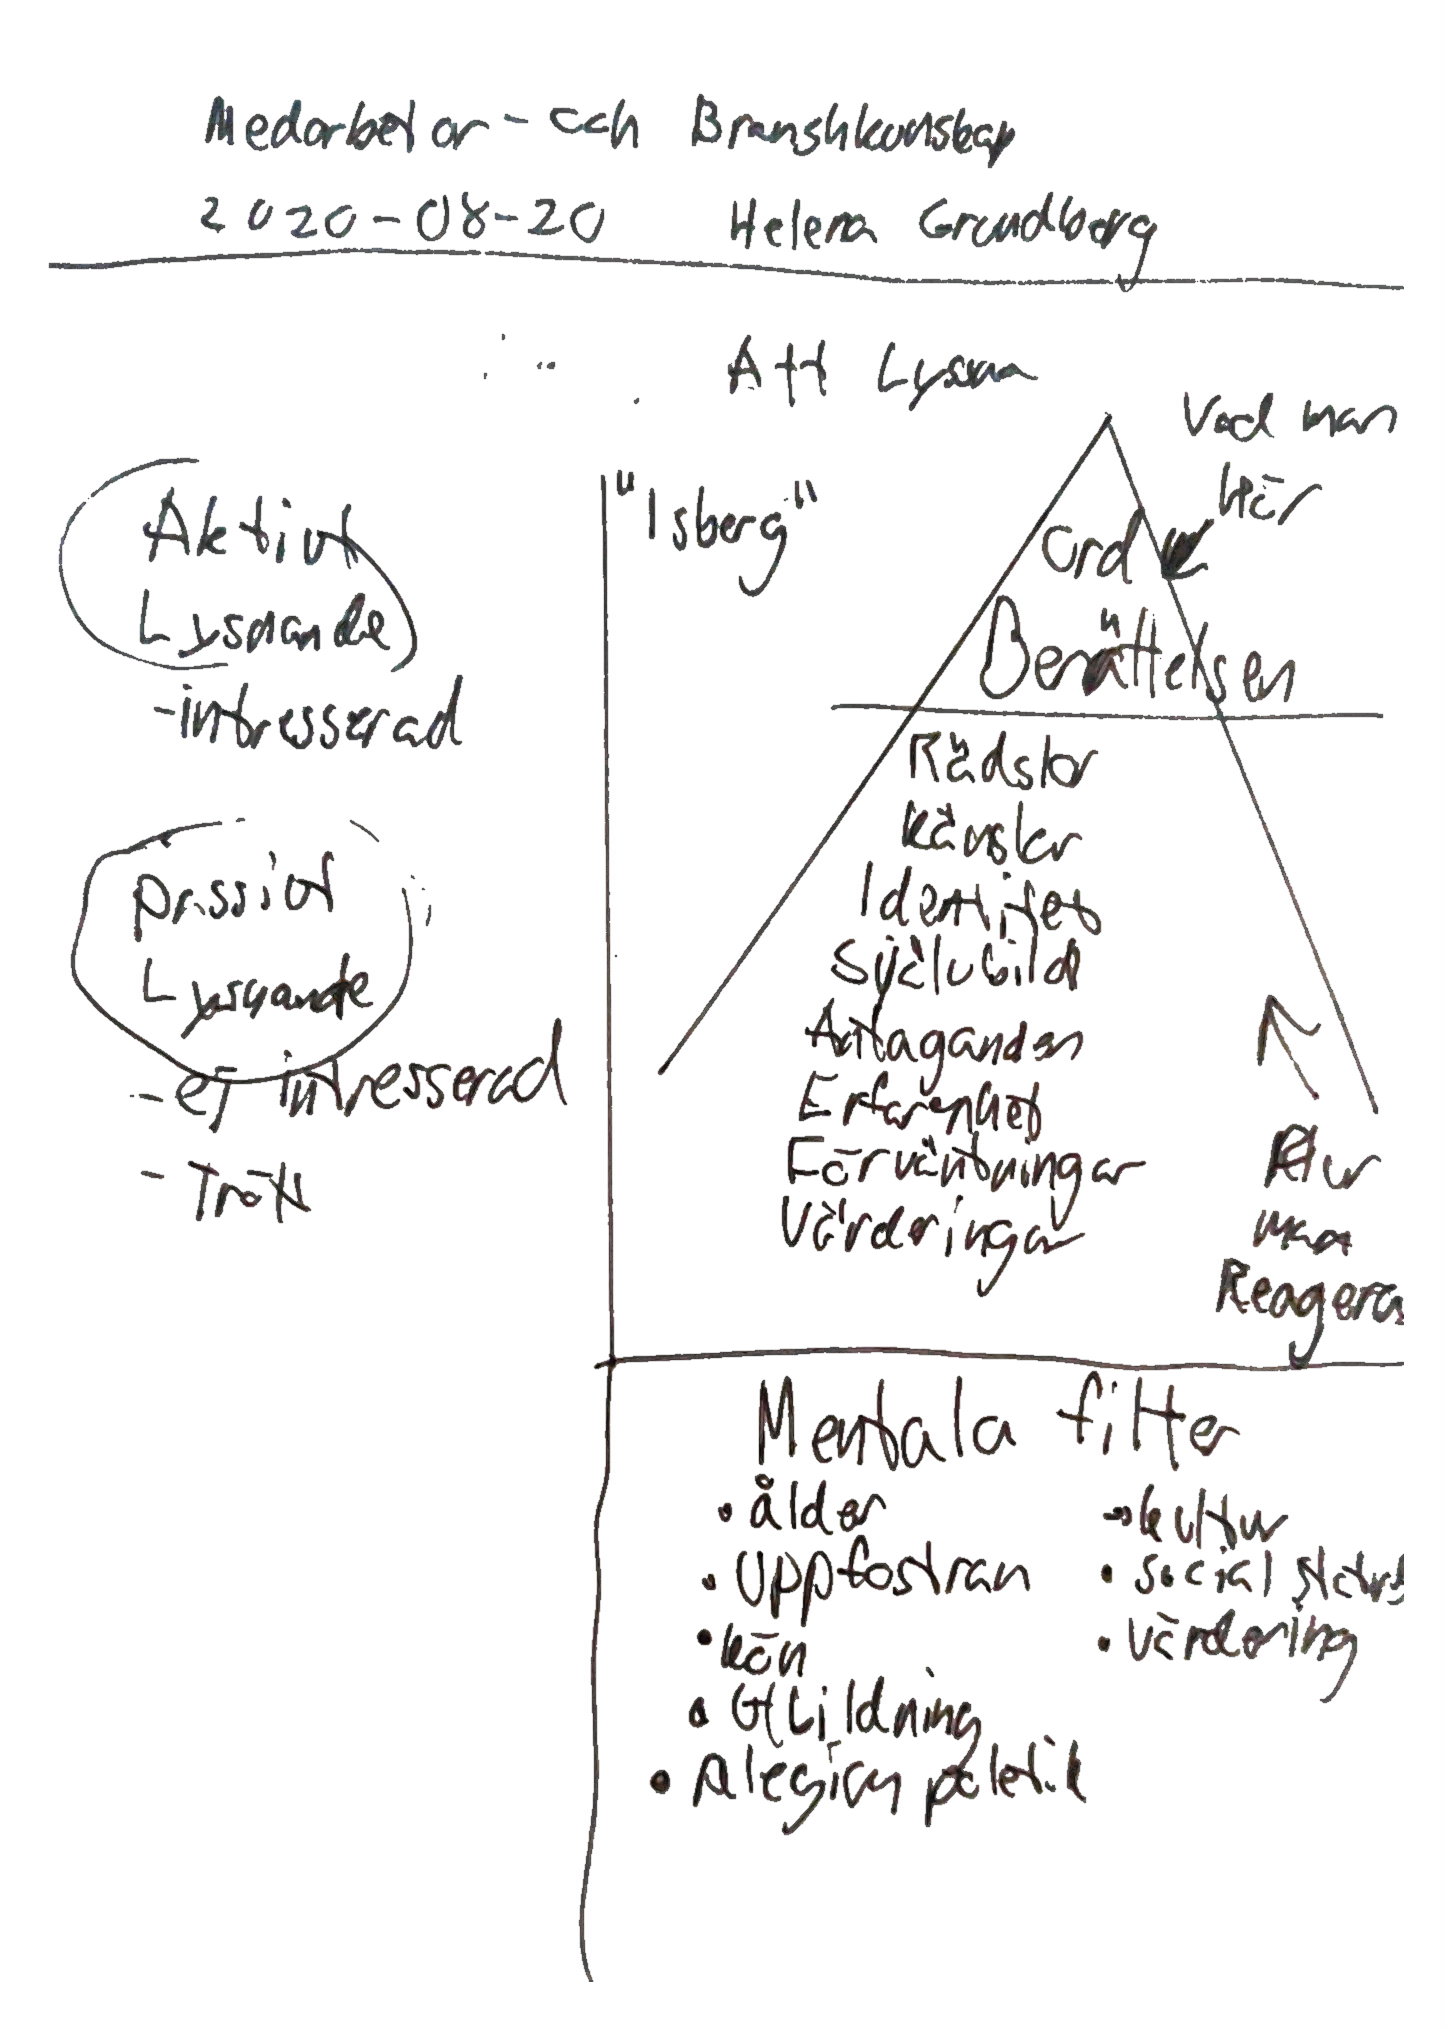 Medarbetar- och Branshkunskap
2020-08-20 Helena Grundberg
Att Lyssna
Aktivt
Lyssnande
-intresserad
passivt
Lyssnande
- ej intresserad
- Trött
"Isberg"
Vad man
hör
Ord
Berättelsen
Rädslor
känslor
Identitet
Självbild
Antaganden
Erfarenhet
Förväntningar
Värderingar
Hur
man
Reageras
Mentala filter
• ålder
• uppfostran
• kön
• Utbildning
• Religion poletik
• kultur
• social status
• värdering